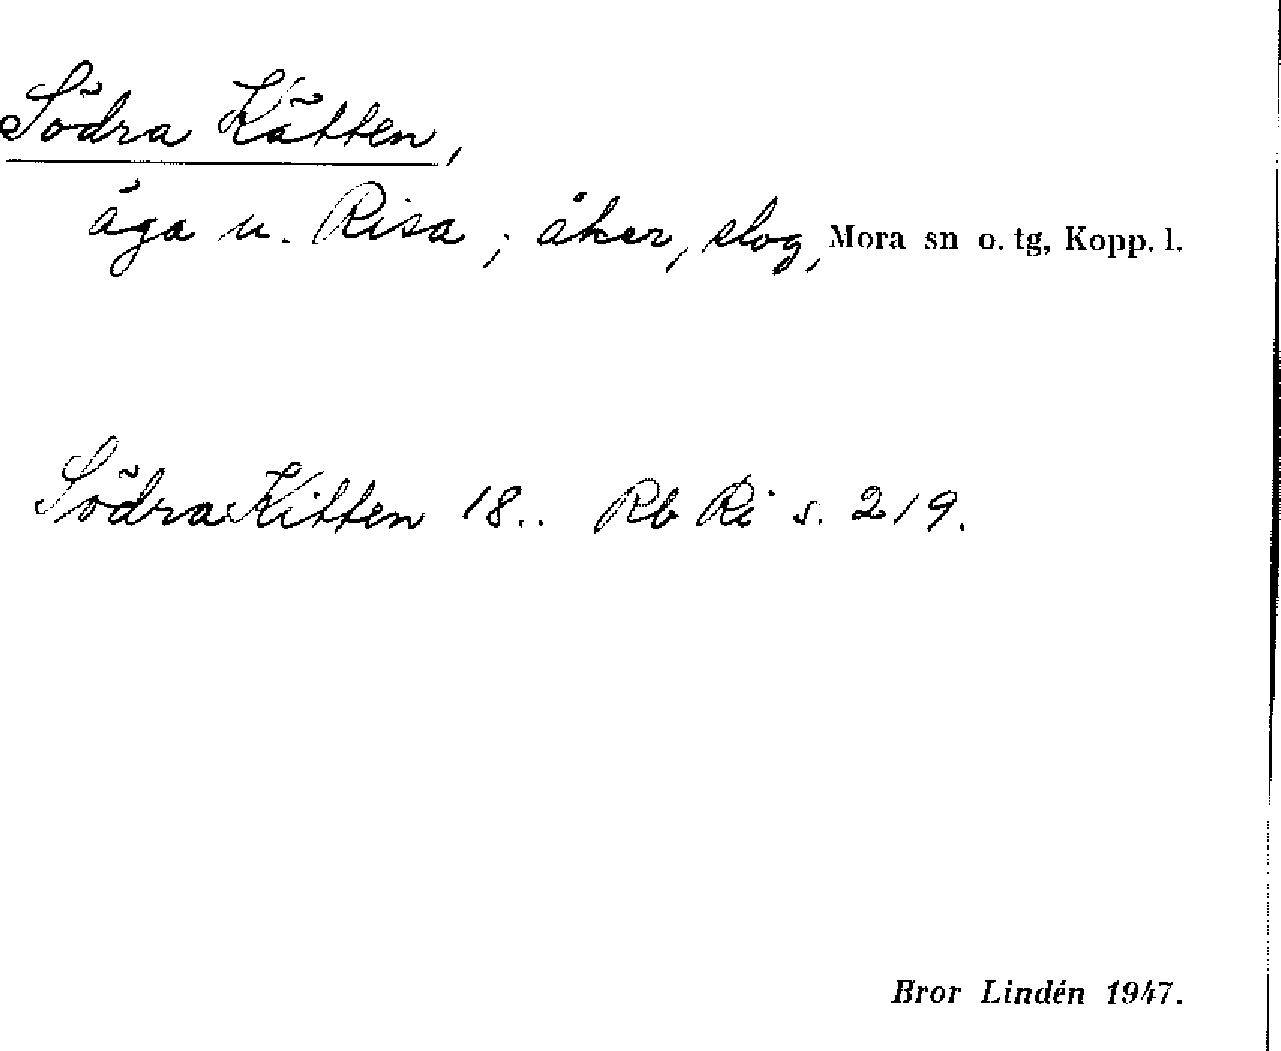 Södra Kätten,
äga u. Risa; åker, slog, Mora sn o. tg, Kopp. l.
Södra Kitten 18.. Rb Ri s. 219.
Bror Lindén 1947.